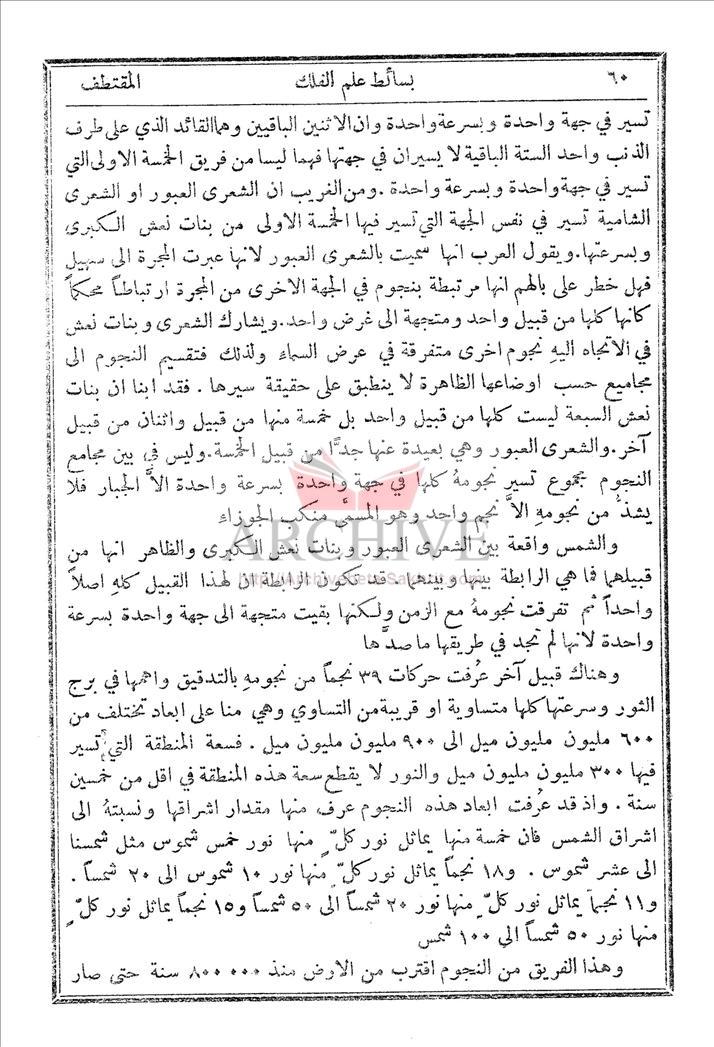 ٦٠ بسائط علم الفلك المقتطف
تسير في جهة واحدة وبسرعة واحدة وان الاثنين الباقيين وهما القائد الذي على طرف
الذنب واحد الستة الباقية لا يسيران في جهتها فهما ليسا من فريق الخمسة الاولى التي
تسير في جهة واحدة وبسرعة واحدة . ومن الغريب ان الشعرى العبور او الشعرى
الشامية تسير في نفس الجهة التي تسير فيها الخمسة الاولى من بنات نعش الكبرى
وبسرعتها. ويقول العرب انها سميت بالشعرى العبور لانها عبرت المجرة الى سهيل
فهل خطر على بالهم انها مرتبطة بنجوم في الجهة الاخرى من المجرة ارتباطاً محكماً
كانها كلها من قبيل واحد ومتجهة الى غرض واحد. ويشارك الشعرى وبنات نعش
في الاتجاه اليهِ نجوم اخرى متفرقة في عرض السماء ولذلك فتقسيم النجوم الى
مجاميع حسب اوضاعها الظاهرة لا ينطبق على حقيقة سيرها . فقد ابنا ان بنات
نعش السبعة ليست كلها من قبيل واحد بل خمسة منها من قبيل واثنان من قبيل
آخر. والشعرى العبور وهي بعيدة عنها جدًّا من قبيل الخمسة. وليس في بين مجامع
النجوم مجموع تسير نجومهُ كلها في جهة واحدة بسرعة واحدة الاَّ الجبار فلا
يشذُّ من نجومهِ الاَّ نجم واحد وهو المسمَّى منكب الجوزاء
ARCHIVE
والشمس واقعة بين الشعرى العبور وبنات نعش الكبرى والظاهر انها من
قبيلهما فما هي الرابطة بينها وبينهما . قد تكون الرابطة ان لهذا القبيل كلهِ اصلاً
واحداً ثم تفرقت نجومهُ مع الزمن ولكنها بقيت متجهة الى جهة واحدة بسرعة
واحدة لانها لم تجد في طريقها ما صدَّها
وهناك قبيل آخر عُرفت حركات ٣٩ نجماً من نجومهِ بالتدقيق واهمها في برج
الثور وسرعتها كلها متساوية او قريبة من التساوي وهي منا على ابعاد تختلف من
٦٠٠ مليون مليون ميل الى ٩٠٠ مليون مليون ميل . فسعة المنطقة التي تسير
فيها ٣٠٠ مليون مليون ميل والنور لا يقطع سعة هذه المنطقة في اقل من خمسين
سنة . واذ قد عُرفت ابعاد هذه النجوم عرف منها مقدار اشراقها ونسبتهُ الى
اشراق الشمس فان خمسة منها يماثل نور كلٍّ منها نور خمس شموس مثل شمسنا
الى عشر شموس . و١٨ نجماً يماثل نور كلٍّ منها نور ١٠ شموس الى ٢٠ شمساً .
و١١ نجماً يماثل نور كلٍّ منها نور ٢٠ شمساً الى ٥٠ شمساً و١٥ نجماً يماثل نور كلٍّ
منها نور ٥٠ شمساً الى ١٠٠ شمس
وهذا الفريق من النجوم اقترب من الارض منذ ٨٠٠٠٠٠ سنة حتى صار